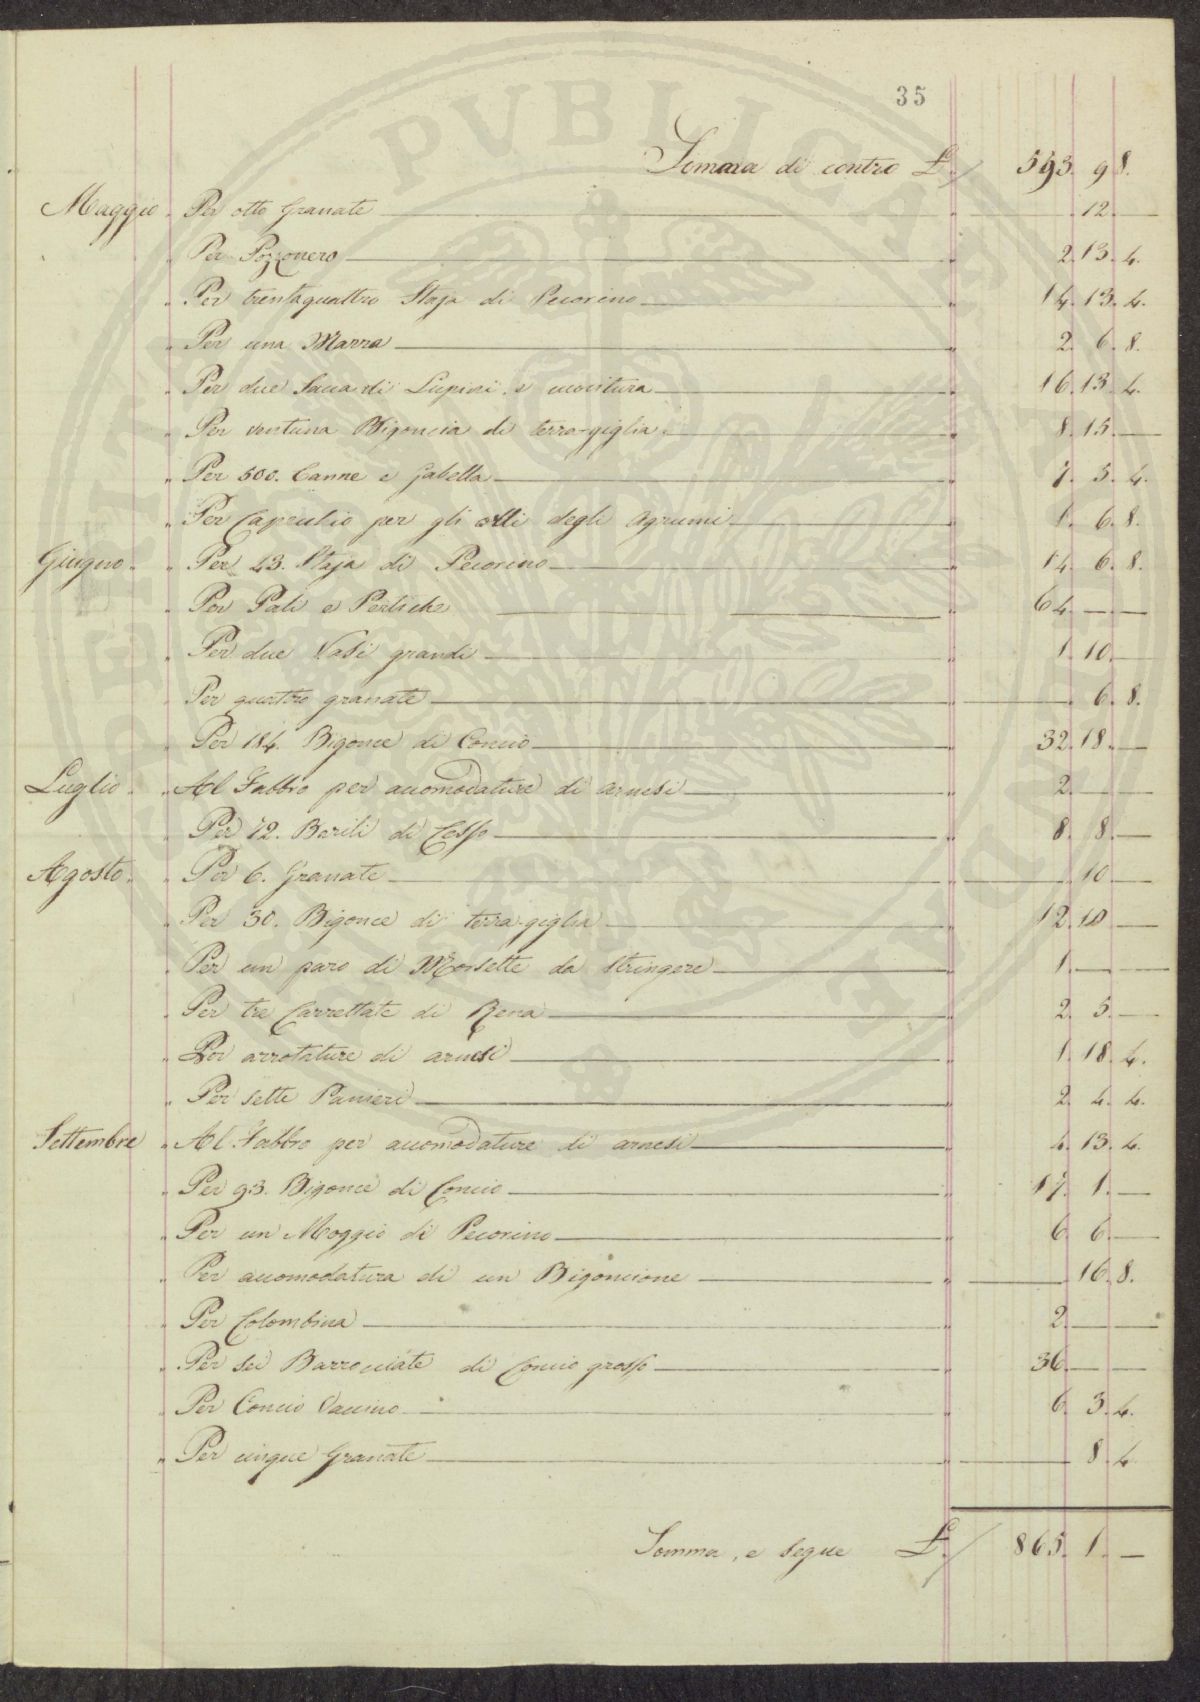 35
Somma di contro £ 593. 9 8.
Maggio " Per otto Granate 12. —
" Per Pozzonero 2. 13. 4.
" Per trentaquattro Staja di Pecorino 14. 13. 4.
" Per una Marra 2. 6. 8.
" Per due Sacca di Lupini, e 16. 13. 4.
" Per ventuna Bigoncia di terra-giglia 8. 15. —
" Per 500. Canne e Gabella 7. 3. 4.
" Per Capecchio per gli degli Agrumi 1. 6. 8.
Giugno " Per 43. Staja di Pecorino 14. 6. 8.
" Per Pali e Pertiche 64. — —
" Per due Vasi grandi 1. 10. —
" Per quattro granate — 6. 8.
" Per 184. Bigonce di Concio 32. 18. —
Luglio " Al Fabbro per accomodature di arnesi 2. — —
" Per 72. Barili di Cesso 8. 8. —
Agosto " Per 6. Granate — 10. —
" Per 30. Bigonce di terra-giglia 12. 10 —
" Per un paro di Morsette da stringere 1. — —
" Per tre Carrettate di Rena 2. 5. —
" Per arrotature di arnesi 1. 18. 4.
" Per sette Panieri 2. 4. 4.
Settembre " Al Fabbro per accomodature di arnesi 4. 13. 4.
" Per 93. Bigonce di Concio 17. 1. —
" Per un Moggio di Pecorino 6. 6. —
" Per accomodatura di un Bigoncione — 16. 8.
" Per Colombina 2. — —
" Per sei Barrocciate di Concio grosso 36. — —
" Per Concio Vaccino 6. 3. 4.
" Per cinque Granate — 8. 4.
Somma, e segue £ 865. 1. —